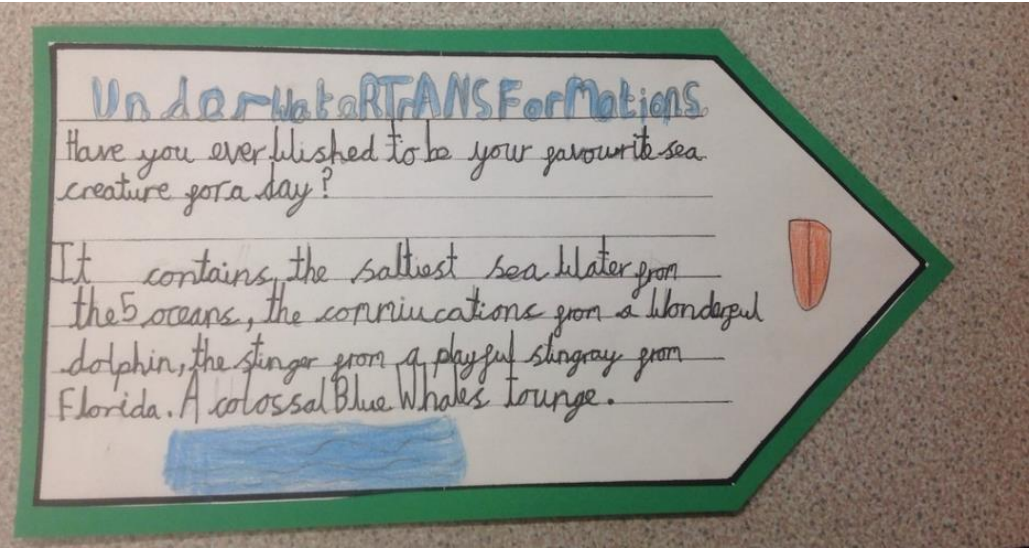 UnderWateRTrANSForMations
Have you ever wished to be your favourite sea
creature for a day?
It contains, the saltiest sea water from
the 5 oceans, the conmiucations from a wonderful
dolphin, the stinger from a playful stingray from
Florida. A colossal Blue Whales tounge.